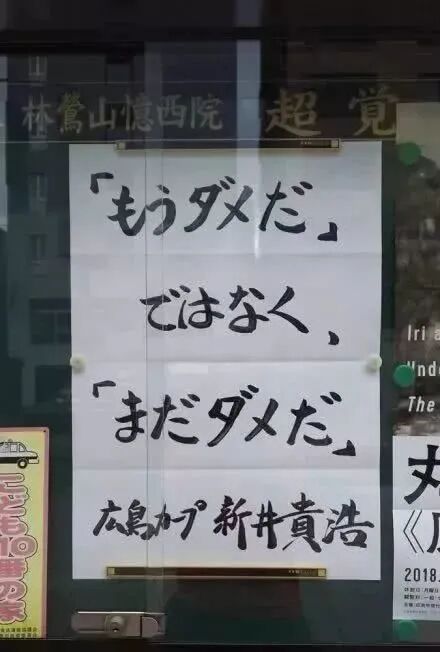 林鶯山憶西院 超覚
「もうダメだ」
ではなく、
「まだダメだ」
広島カープ 新井貴浩
こども110番の家
Iri a
Unde
The
丸
2018.